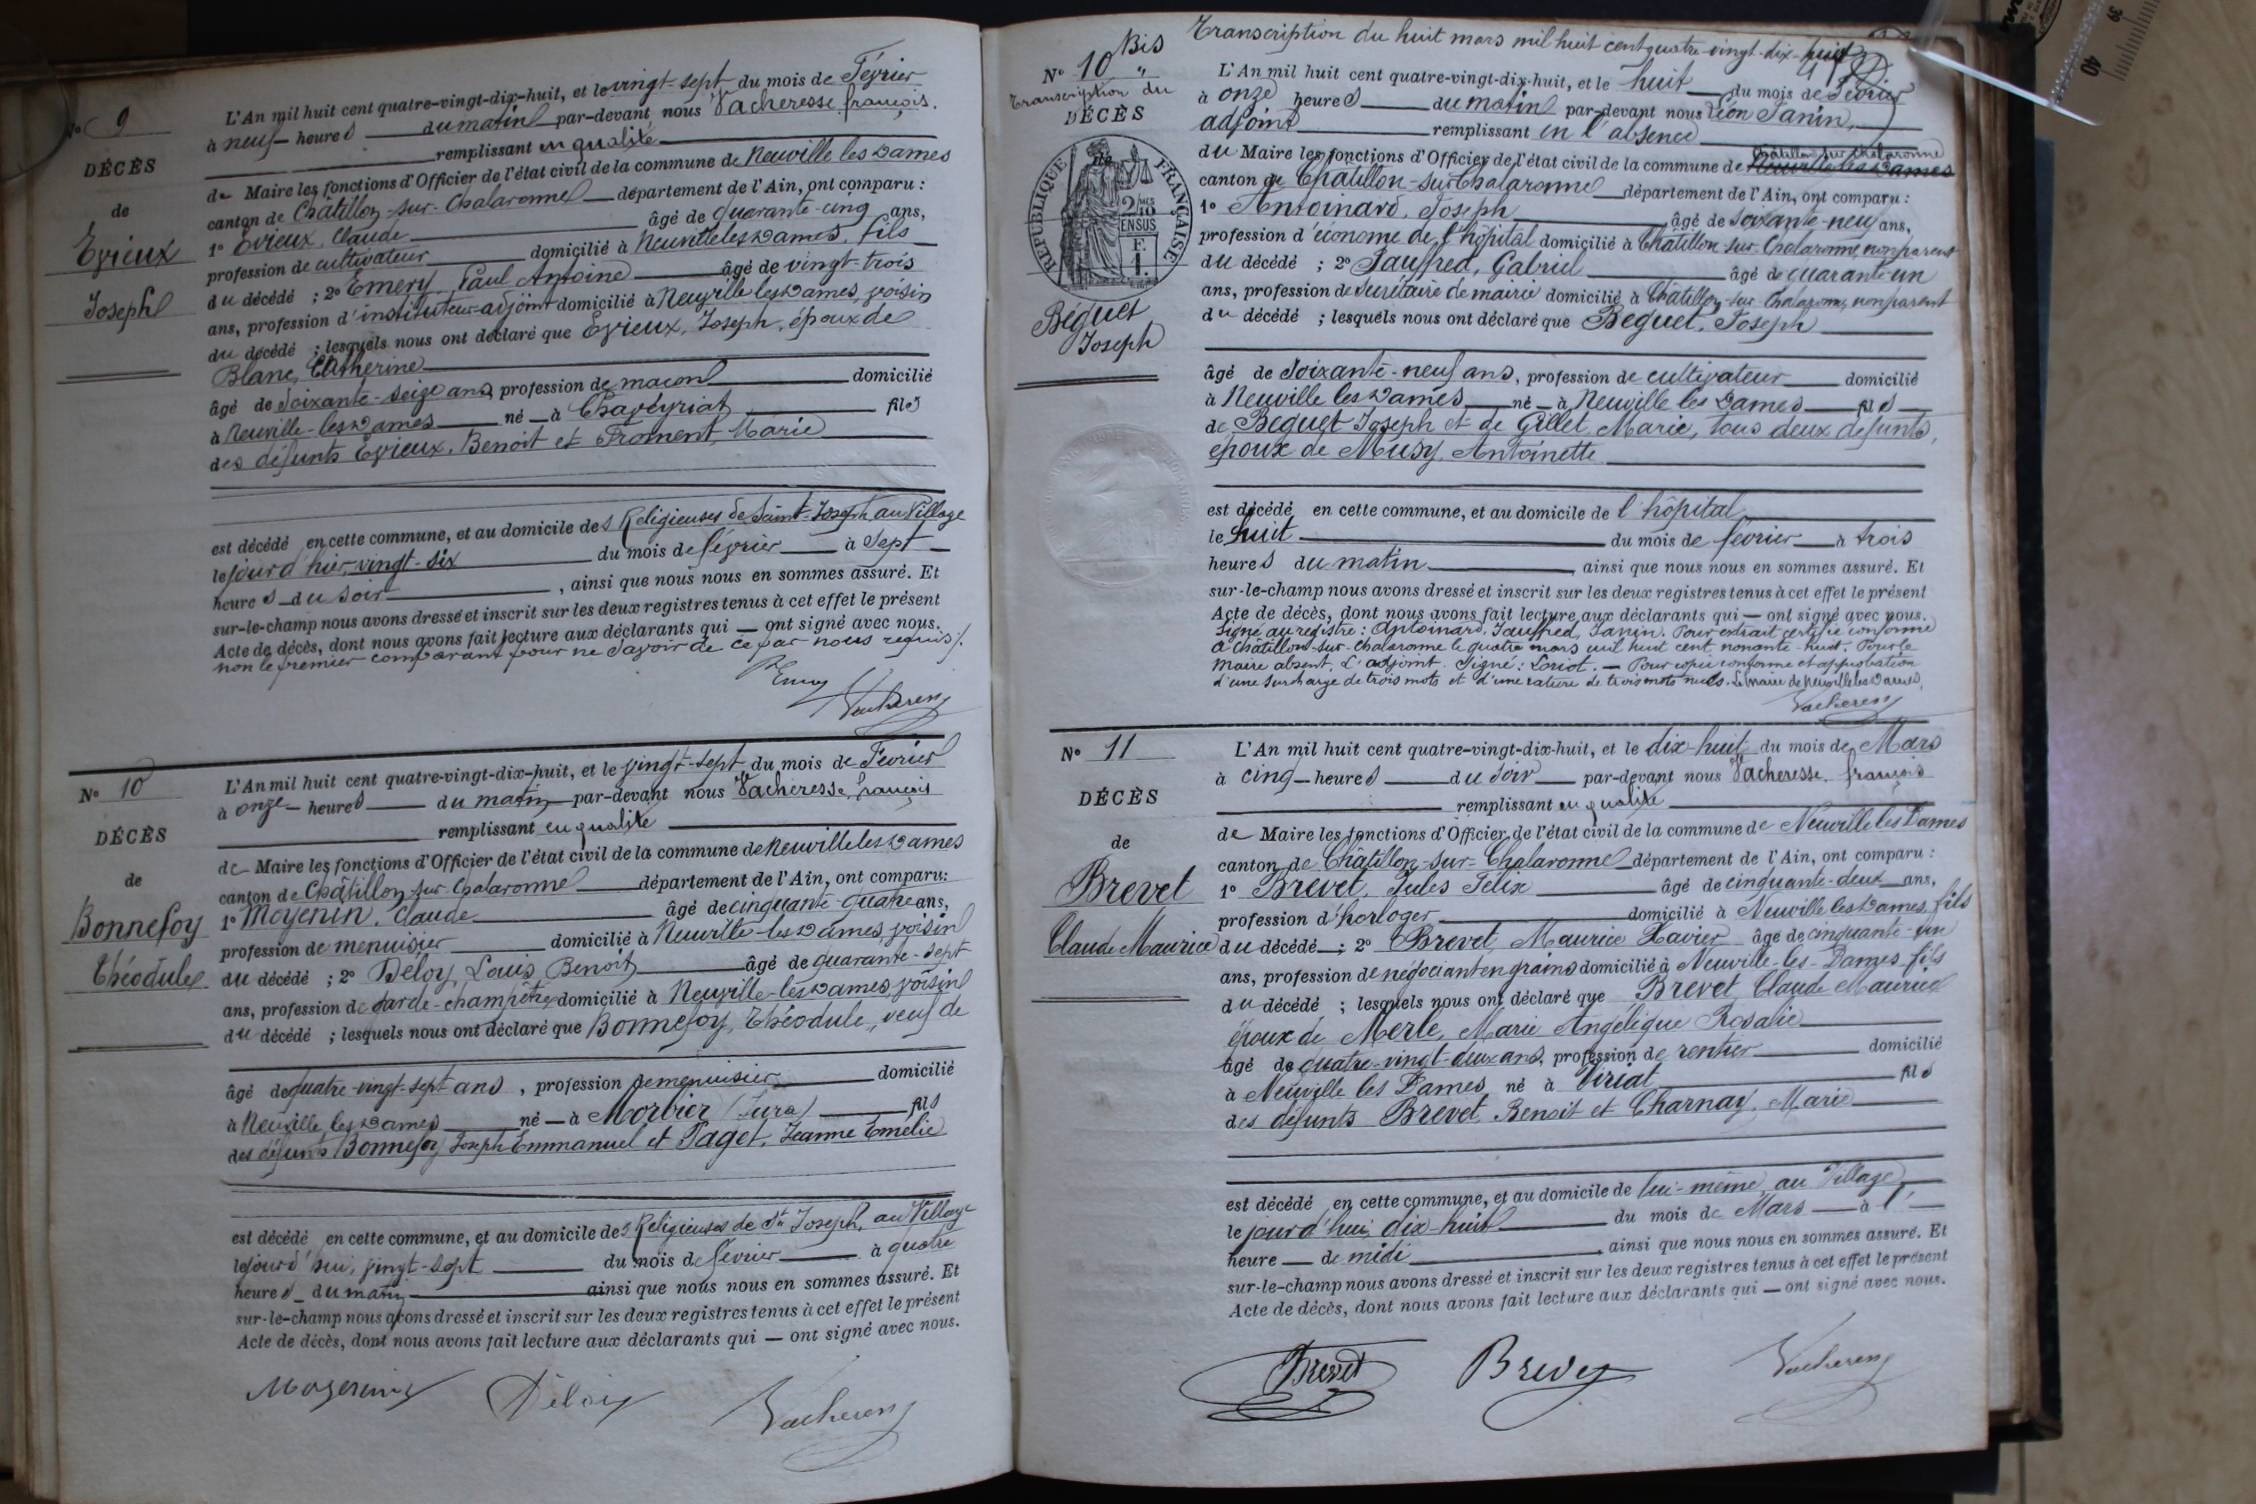 N° 9
DÉCÈS
de
Evieux
Joseph
L'An mil huit cent quatre-vingt-dix-huit, et le vingt-sept du mois de Février
à neuf heures du matin par-devant nous Vacheresse, françois,
remplissant en qualité
de Maire les fonctions d'Officier de l'état civil de la commune de Neuville les Dames
canton de Châtillon-sur-Chalaronne département de l'Ain, ont comparu :
1° Evieux, Claude âgé de quarante-cinq ans,
profession de cultivateur domicilié à Neuville les Dames, fils
du décédé ; 2° Emery, Paul Antoine âgé de vingt-trois
ans, profession d'instituteur-adjoint domicilié à Neuville les Dames, voisin
du décédé ; lesquels nous ont déclaré que Evieux, Joseph, époux de
Blanc, Catherine
âgé de soixante-seize ans, profession de maçon domicilié
à Neuville-les-Dames né à Chaveyriat fils
des défunts Evieux, Benoit et Froment, Marie
est décédé en cette commune, et au domicile des Religieuses de Saint-Joseph, au Village
le jour d'hier, vingt-six du mois de février à sept
heures du soir, ainsi que nous nous en sommes assuré. Et
sur-le-champ nous avons dressé et inscrit sur les deux registres tenus à cet effet le présent
Acte de décès, dont nous avons fait lecture aux déclarants qui ont signé avec nous.
non le premier comparant pour ne savoir de ce par nous requis/.
PEmery
Vacheresse
N° 10
DÉCÈS
de
Bonnefoy
Théodule
L'An mil huit cent quatre-vingt-dix-huit, et le vingt-sept du mois de Février
à onze heures du matin par-devant nous Vacheresse, françois
remplissant en qualité
de Maire les fonctions d'Officier de l'état civil de la commune de Neuville les Dames
canton de Châtillon-sur-Chalaronne département de l'Ain, ont comparu :
1° Moyenin, Claude âgé de cinquante-quatre ans,
profession de menuisier domicilié à Neuville-les-Dames, voisin
du décédé ; 2° Deloy, Louis Benoit âgé de quarante-sept
ans, profession de Garde-champêtre domicilié à Neuville-les-Dames, voisin
du décédé ; lesquels nous ont déclaré que Bonnefoy, Théodule, veuf de
âgé de quatre-vingt-sept ans, profession de menuisier domicilié
à Neuville les Dames né à Morbier (Jura) fils
des défunts Bonnefoy Joseph Emmanuel et Paget, Jeanne Emélie
est décédé en cette commune, et au domicile des Religieuses de St Joseph, au Village
le jourd'hui, vingt-sept du mois de février à quatre
heures du matin ainsi que nous nous en sommes assuré. Et
sur-le-champ nous avons dressé et inscrit sur les deux registres tenus à cet effet le présent
Acte de décès, dont nous avons fait lecture aux déclarants qui ont signé avec nous.
Moyenin Déloy Vacheresse
Transcription du huit mars mil huit cent quatre-vingt-dix-huit
N° 10 Bis
Transcription du
DÉCÈS
de
RÉPUBLIQUE FRANÇAISE
2/10 MES
EN SUS
1 F.
Béguet
Joseph
L'An mil huit cent quatre-vingt-dix-huit, et le huit du mois de Février
à onze heures du matin par-devant nous Léon Janin,
adjoint remplissant en l'absence
du Maire les fonctions d'Officier de l'état civil de la commune de Châtillon sur Chalaronne Neuville les Dames
canton de Châtillon-sur-Chalaronne département de l'Ain, ont comparu :
1° Antoinard, Joseph âgé de soixante-neuf ans,
profession d'économe de l'hôpital domicilié à Châtillon-sur-Chalaronne, non parent
du décédé ; 2° Jauffred, Gabriel âgé de quarante un
ans, profession de secrétaire de mairie domicilié à Châtillon-sur-Chalaronne, non parent
du décédé ; lesquels nous ont déclaré que Béguet, Joseph
âgé de soixante-neuf ans, profession de cultivateur domicilié
à Neuville les Dames né à Neuville les Dames fils
de Béguet Joseph et de Gillet Marie, tous deux défunts,
époux de Musy, Antoinette
est décédé en cette commune, et au domicile de l'hôpital
le huit du mois de février à trois
heures du matin ainsi que nous nous en sommes assuré. Et
sur-le-champ nous avons dressé et inscrit sur les deux registres tenus à cet effet le présent
Acte de décès, dont nous avons fait lecture aux déclarants qui ont signé avec nous.
Signé au registre : Antoinard, Jauffred, Janin. Pour extrait certifié conforme
à Châtillon-sur-Chalaronne le quatre mars mil huit cent nonante-huit. Pour le
Maire absent, L'adjoint. Signé : Loriot. — Pour copie conforme et approbation
d'une surcharge de trois mots et d'une rature de trois mots nuls. Le Maire de Neuville les Dames,
Vacheresse
N° 11
DÉCÈS
de
Brevet
Claude Maurice
L'An mil huit cent quatre-vingt-dix-huit, et le dix-huit du mois de Mars
à cinq heures du soir par-devant nous Vacheresse, françois
remplissant en qualité
de Maire les fonctions d'Officier de l'état civil de la commune de Neuville les Dames
canton de Châtillon-sur-Chalaronne département de l'Ain, ont comparu :
1° Brevet, Jules Félix âgé de cinquante-deux ans,
profession d'horloger domicilié à Neuville les Dames, fils
du décédé ; 2° Brevet, Maurice Xavier âgé de cinquante-un
ans, profession de négociant en grains domicilié à Neuville-les-Dames, fils
du décédé ; lesquels nous ont déclaré que Brevet, Claude Maurice
époux de Merle, Marie Angélique Rosalie
âgé de quatre-vingt-deux ans, profession de rentier domicilié
à Neuville les Dames né à Viriat fils
des défunts Brevet, Benoît et Charnay, Marie
est décédé en cette commune, et au domicile de lui-même, au Village,
le jourd'hui, dix-huit du mois de Mars à l'
heure de midi ainsi que nous nous en sommes assuré. Et
sur-le-champ nous avons dressé et inscrit sur les deux registres tenus à cet effet le présent
Acte de décès, dont nous avons fait lecture aux déclarants qui ont signé avec nous.
Brevet Brevet Vacheresse
39
40